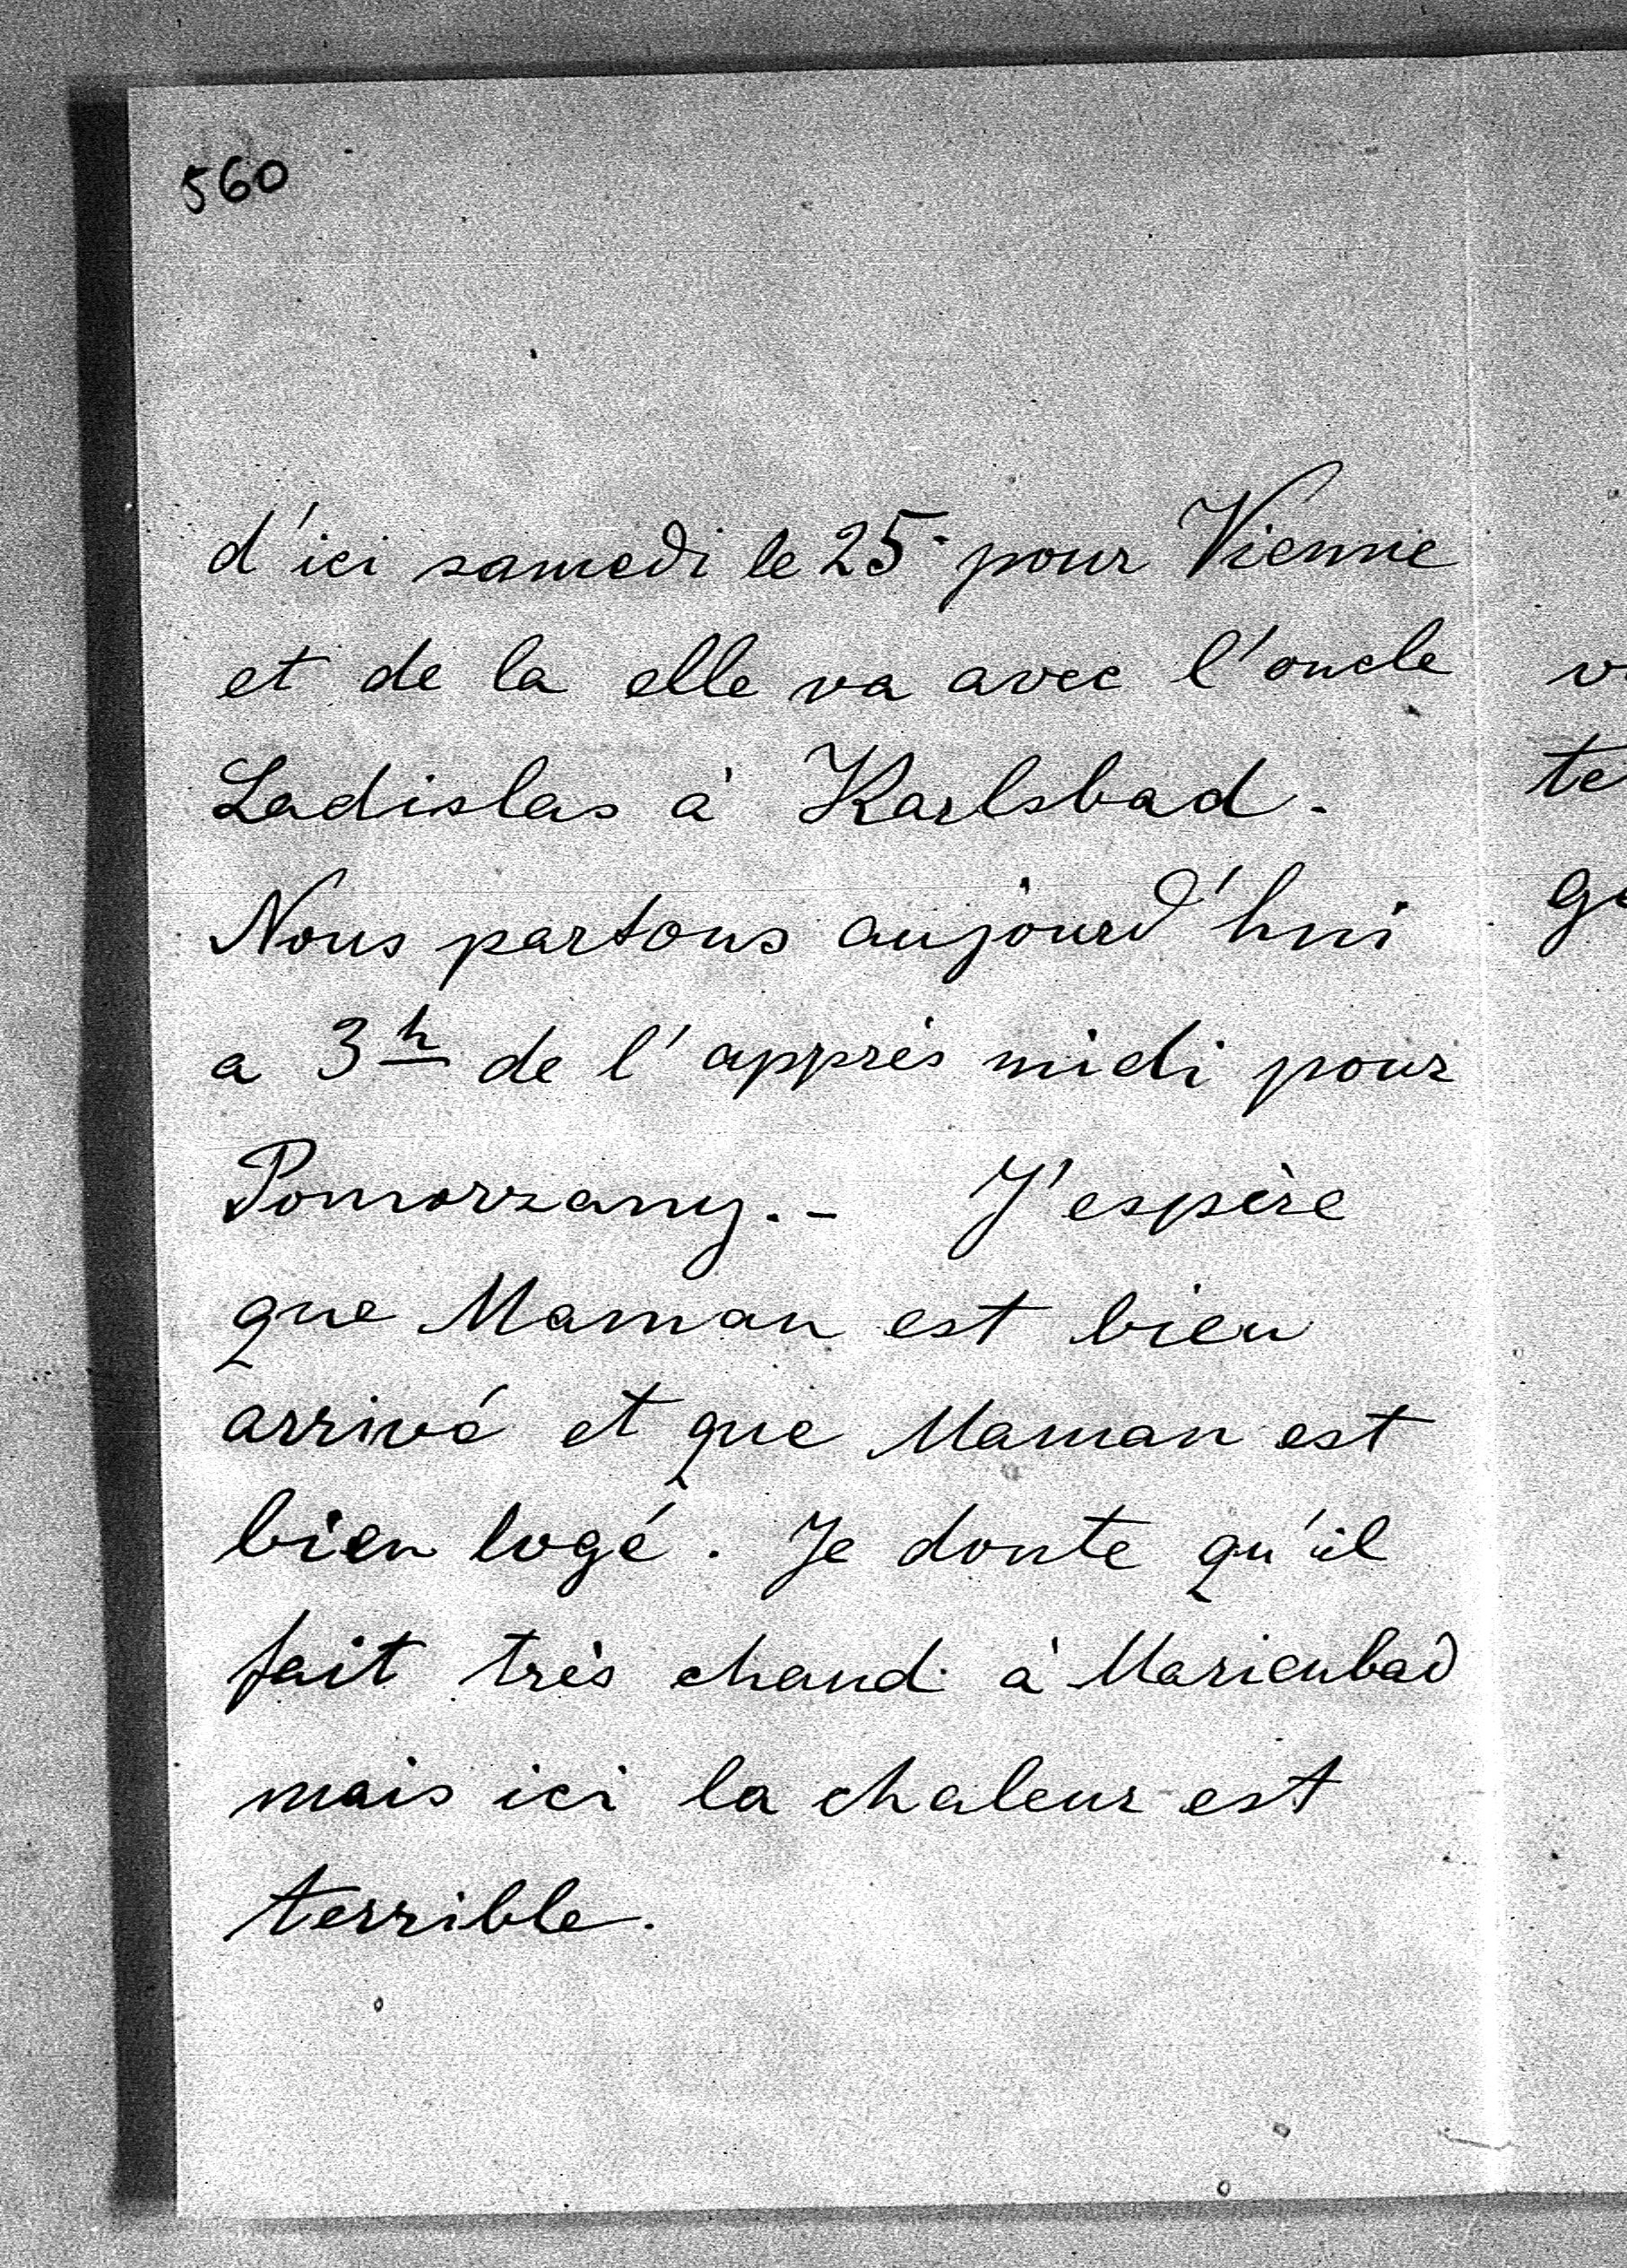 560
d'ici samedi le 25 pour Vienne
et de la elle va avec l'oncle
Ladislas à Karlsbad.
Nous partons aujourd'hui
a 3h de l'apprès midi pour
Pomorzany.- J'espère
que Maman est bien
arrivé et que Maman est
bien logé. Je doute qu'il
fait très chaud à Marienbad
mais ici la chaleur est
terrible.